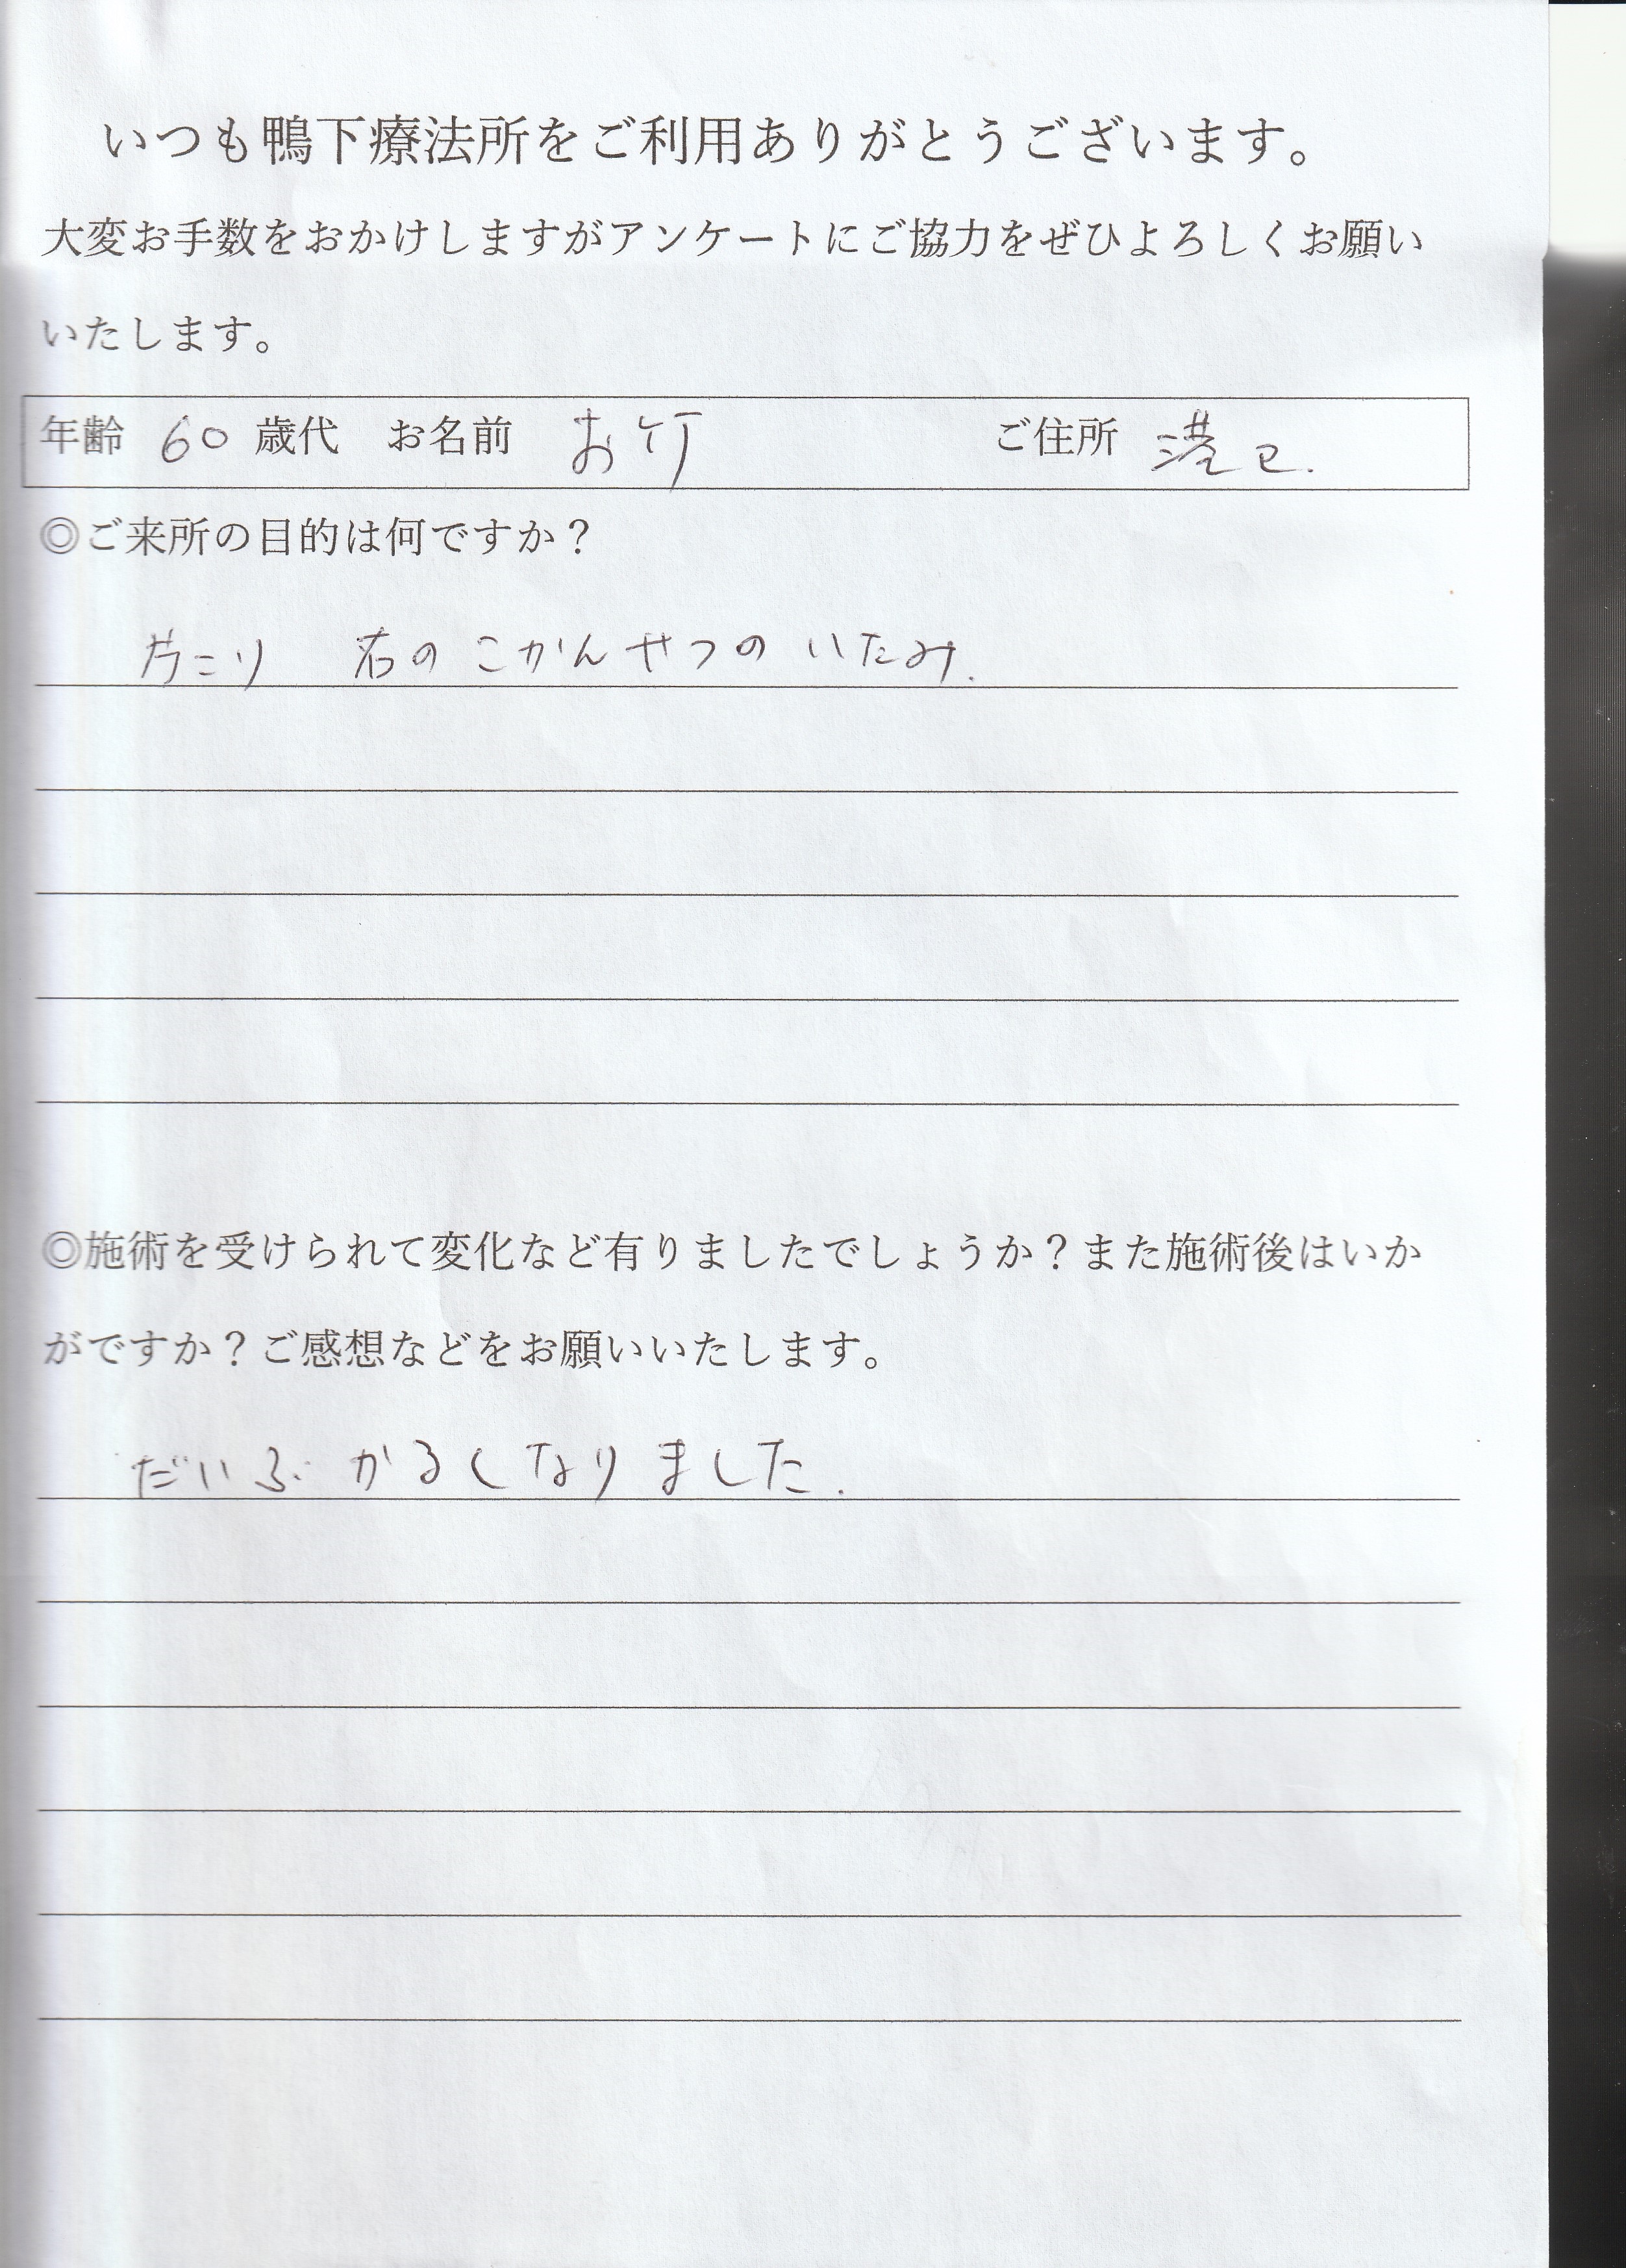 いつも鴨下療法所をご利用ありがとうございます。
大変お手数をおかけしますがアンケートにご協力をぜひよろしくお願い
いたします。
年齢 60 歳代 お名前 お竹 ご住所 港区.
◎ご来所の目的は何ですか？
肩こり 右の こかんせつの いたみ.
◎施術を受けられて変化など有りましたでしょうか？また施術後はいか
がですか？ご感想などをお願いいたします。
だいぶ かるくなりました.